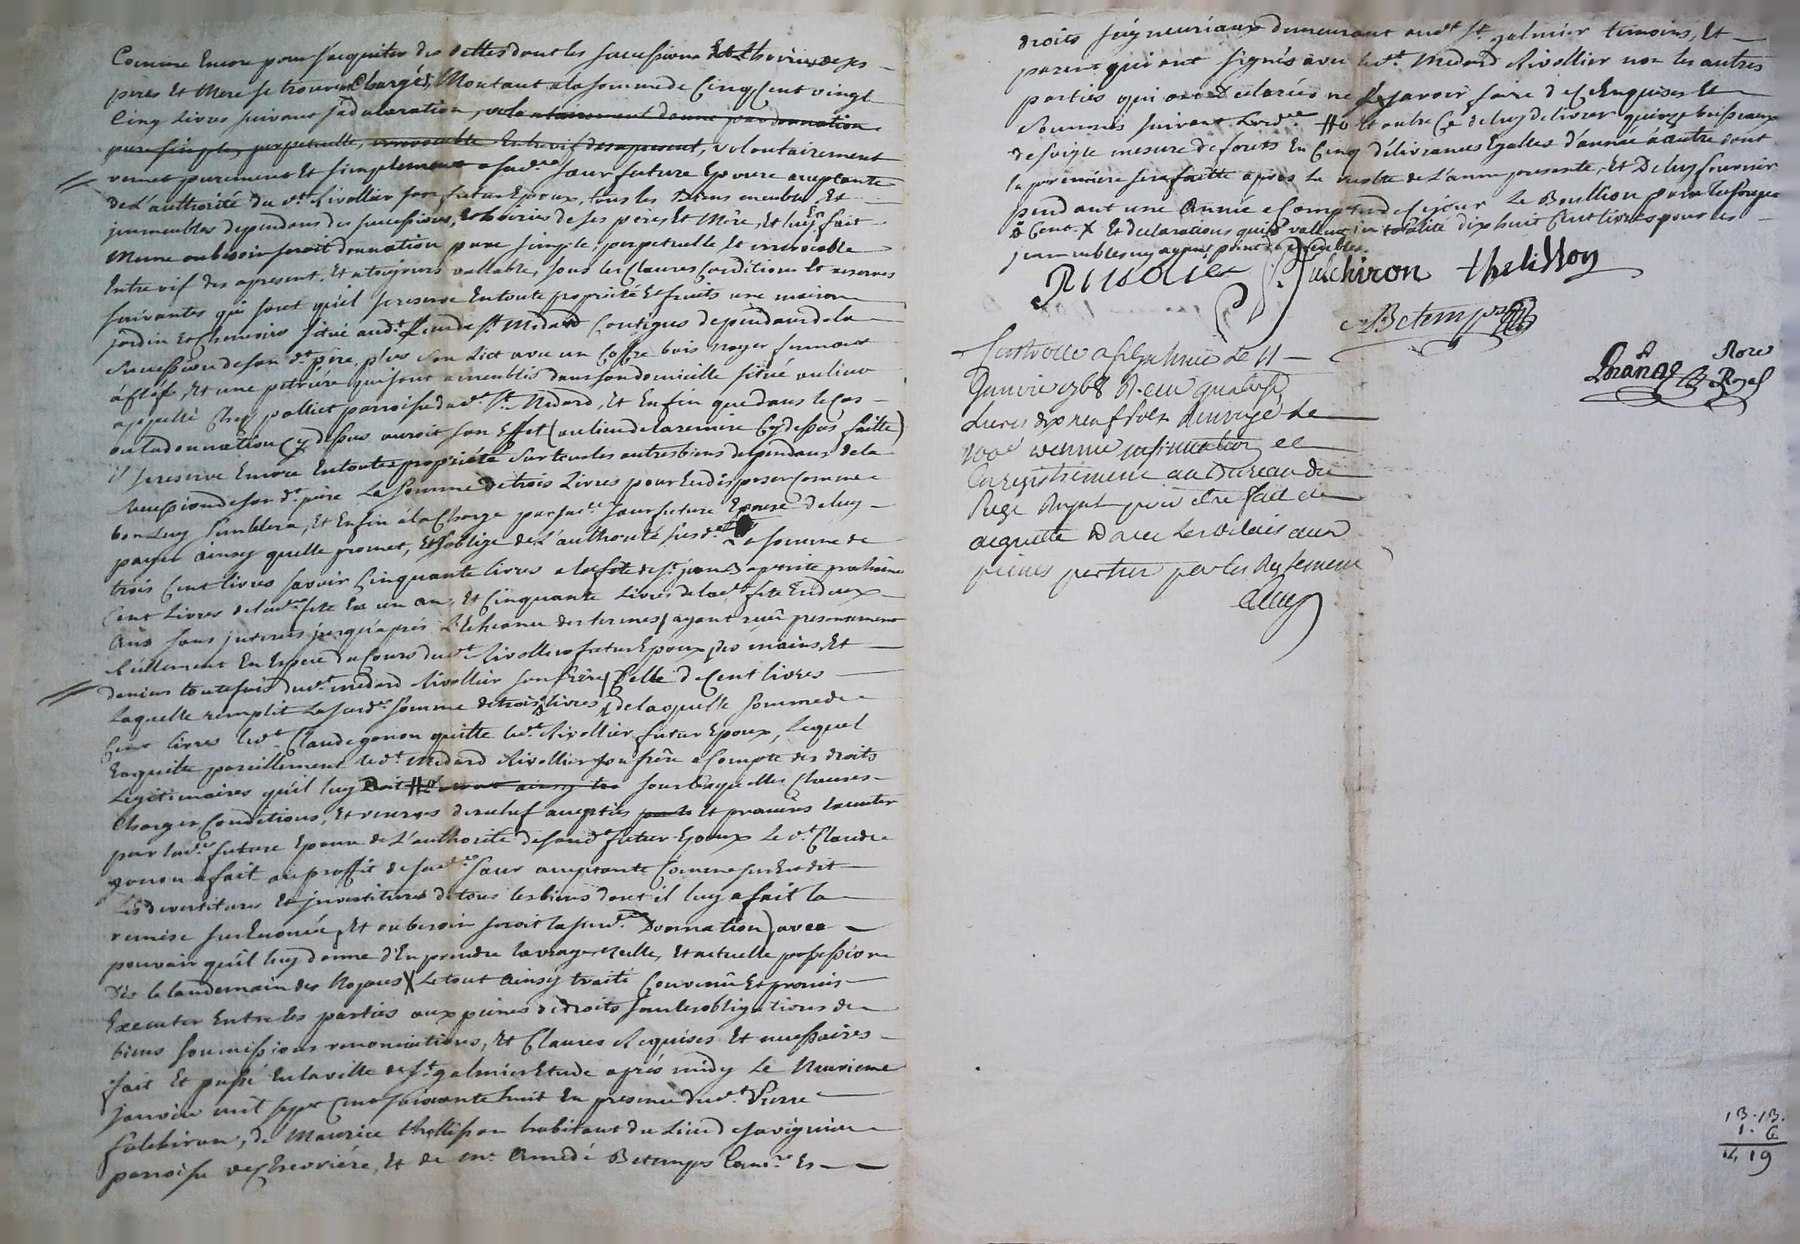 Comme Encore pour s'acquiter des dettes dont les successions Et hoiries de ses
peres Et Mere se trouvent Chargés, Montant a la somme de Cinq Cent vingt
Cinq Livres suivant sa declaration, volontairement donne par donnation
pure simple, perpetuelle, irrevocable Entre vif des apresent, volontairement
remet purement Et simplement a sad.e sœur future Epouse acceptante
de L'authorité du d.t Rivollier son futur Epoux, tous les Biens meubles Et
jmmeubles dependans des successions, Et hoiries de ses peres Et Mère, Et luy En fait
Meme au besoin seroit donnation pure simple perpetuelle Et irrevocable
Entre vif des apresent, Et a toujours vallable, sous les Clauses Conditions Et reserves
suivantes qui sont qu'il se reserve En toute propriété Et fruits une maison
jardin Et Chenevier situé aud.t Lieu de S.t Medard Contigus dependans de la
succession de son d.t père, plus son Lict avec un Coffre bois noyer fermant
à Clef, Et une petrière qui sont a meublés dans son domicille situé au lieu
appellé Chez palliet parroisse dud.t S.t Medard, Et Enfin que dans le Cas
ou la donnation Cy dessus auroit son Effet (au lieu de la remise Cy dessus faitte)
il se reserve Encore En toute propriété sur tous les autres biens dependans de la
succession de son d.t père La somme de trois Livres pour En disposer Comme
bon Luy semblera, Et Enfin a la Charge par sad.e sœur future Epouse de luy
payer ainsy quelle promet, Et s'oblige de L'authorité susd.e La somme de
trois Cent livres savoir Cinquante livres a la fete de S.t jean B.te prochaine
Cent Livres de lad.e fete En un an, Et Cinquante Livres de lad.e fete En deux
Ans sans jnterets jusqu'apres L'Echeance des termes, ayant reçu presentement
Reellement En Espece du Cours du d.t Rivollier futur Epoux, des mains, Et
deniers toutefois dud.t medard Rivollier son frère, Celle de Cent livres
Laquelle remplit La susd.e somme de trois livres, de laquelle somme de
Cent livres led.t Claude gonon quitte led.t Rivollier futur Epoux, Lequel
En quitte pareillement led.t Medard Rivollier son frère a Compte des droits
Legitimaires qu'il luy Doit sous lesquelles Clauses
Charges Conditions, Et reserves de neuf acceptées et promises Executer
par lad.e future Epouse de L'authorité de son d.t futur Epoux Le d.t Claude
gonon a fait au proffit de sad.e sœur acceptante Comme sus Est dit
Les devestitures Et jnvestitures de tous les biens dont il luy a fait la
remise sus Enoncée, Et au besoin seroit la susd.e Donnation, avec
pouvoir qu'il luy donne d'En prendre la vraye reelle, Et actuelle possession
Des le landemain des Noçes X Le tout Ainsy traité Convenû Et promis
Executer Entre les parties aux peines de droits sous les obligations de
biens soumissions renonciations, Et Clauses Requises Et necessaires
fait Et passé En la ville de S.t galmier Etude après midy Le Neuvieme
Janvier mil sept Cent soixante huit En presence du d.t Pierre
falchiron, de Maurice thelisson habitant du Lieu de savignieu
parroisse de Chevrière, Et de m.e Amedé Betemps Com.re Es
droits seigneuriaux demeurant aud.t S.t galmier temoins, Et
parent qui ont signés avec led.t Medard Rivollier non les autres
parties qui ont Declarées ne Le savoir faire de Ce Enquises Et
sommés suivant L'ord.ce Et outre Ce de luy delivrer quinze boisseaux
de seigle mesure de forets En Cinq délivrances Egalles d'année à autre dont
la premiere sera faitte après la recolte de L'année presente, Et De luy fournir
pendant une Année a Compter de Ce jour Le Bouillion pour la soupe
Cent. X Et declarations quils valent in totalité dix huit Cent livres pour les
jmmeubles ny ayant point de meubles.
Rivolier P. falchiron thelisson
Betemps
Controllé a S.t Galmier Le 11
Janvier 1768 Receu quatorze
Livres dix neuf sols Renvoyé Le
100.e denier insinuation et
Enregistrement au Bureau du
Siege Royal pour etre fait
acquitté Dans Les Delais aux
peines portées par les Reglemens
Not.re
Royal
13.13.
1. 6
14 19